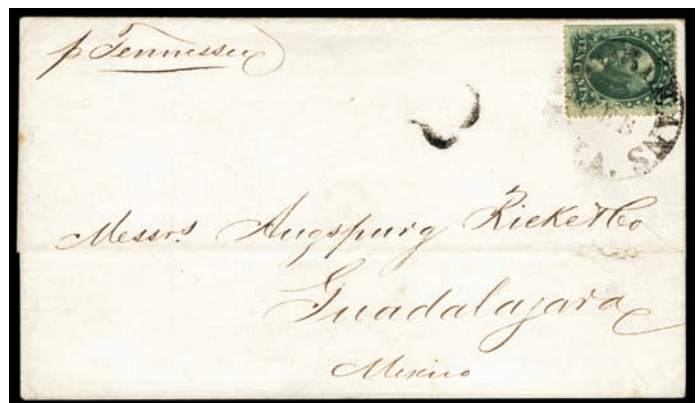 p Tennessee
Messrs. Augspurg Ricke & Co
Guadalajara
Mexico
TEN CENTS
LA.